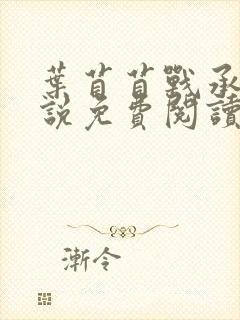 葉苜苜戰承
說免費閱讀
漸令